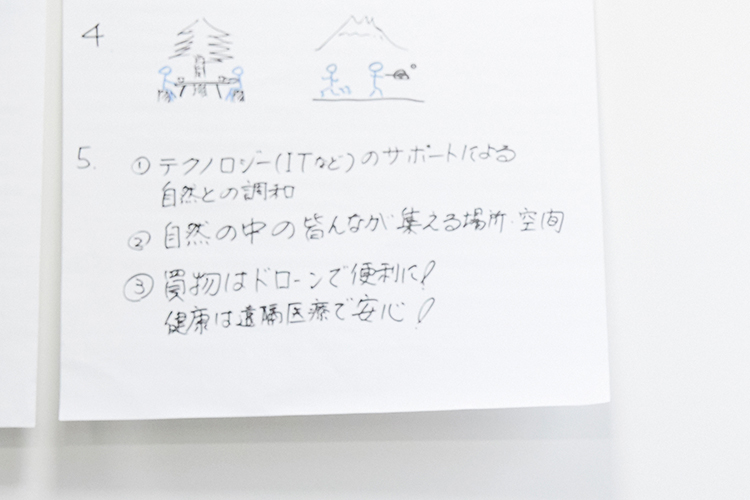 4
5. ① テクノロジー(ITなど)のサポートによる
自然との調和
② 自然の中の皆んなが集える場所・空間
③ 買物はドローンで便利に!
健康は遠隔医療で安心!